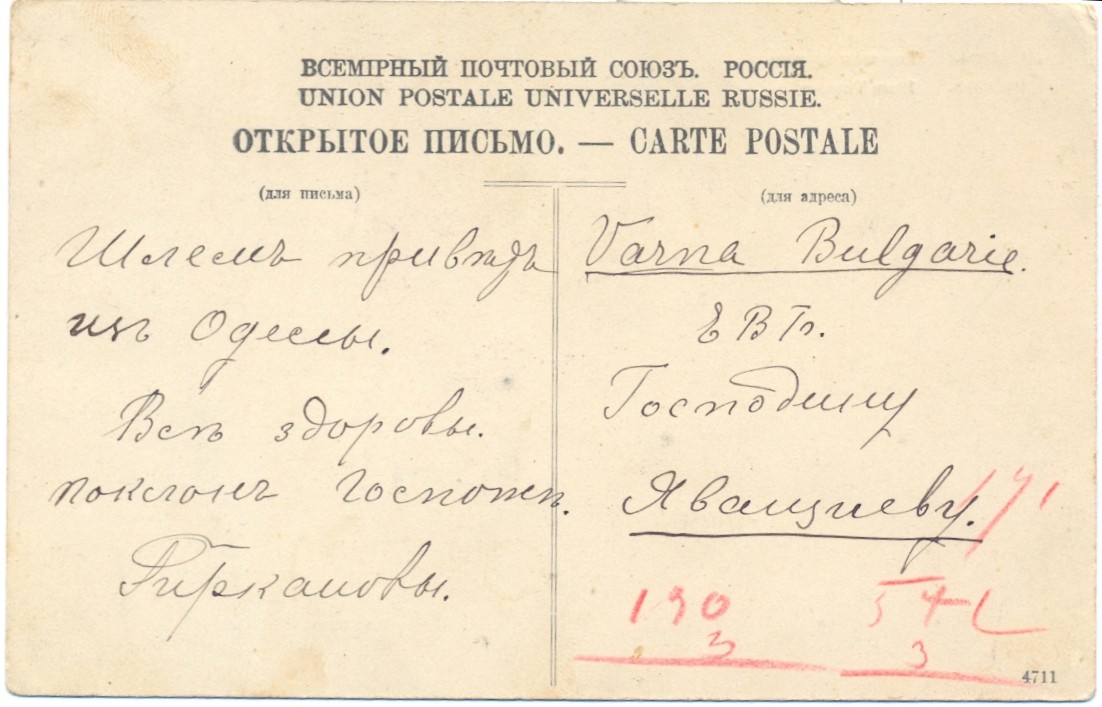 ВСЕМІРНЫЙ ПОЧТОВЫЙ СОЮЗЪ. РОССІЯ.
UNION POSTALE UNIVERSELLE RUSSIE.
ОТКРЫТОЕ ПИСЬМО. — CARTE POSTALE
(для письма)
Шлемъ привѣтъ
изъ Одессы.
Всѣ здоровы.
поклонъ Госпожѣ.
(для адреса)
Varna Bulgarie.
ЕВБ.
Господину
Яващиеву.
171
190
3
54
3
4711